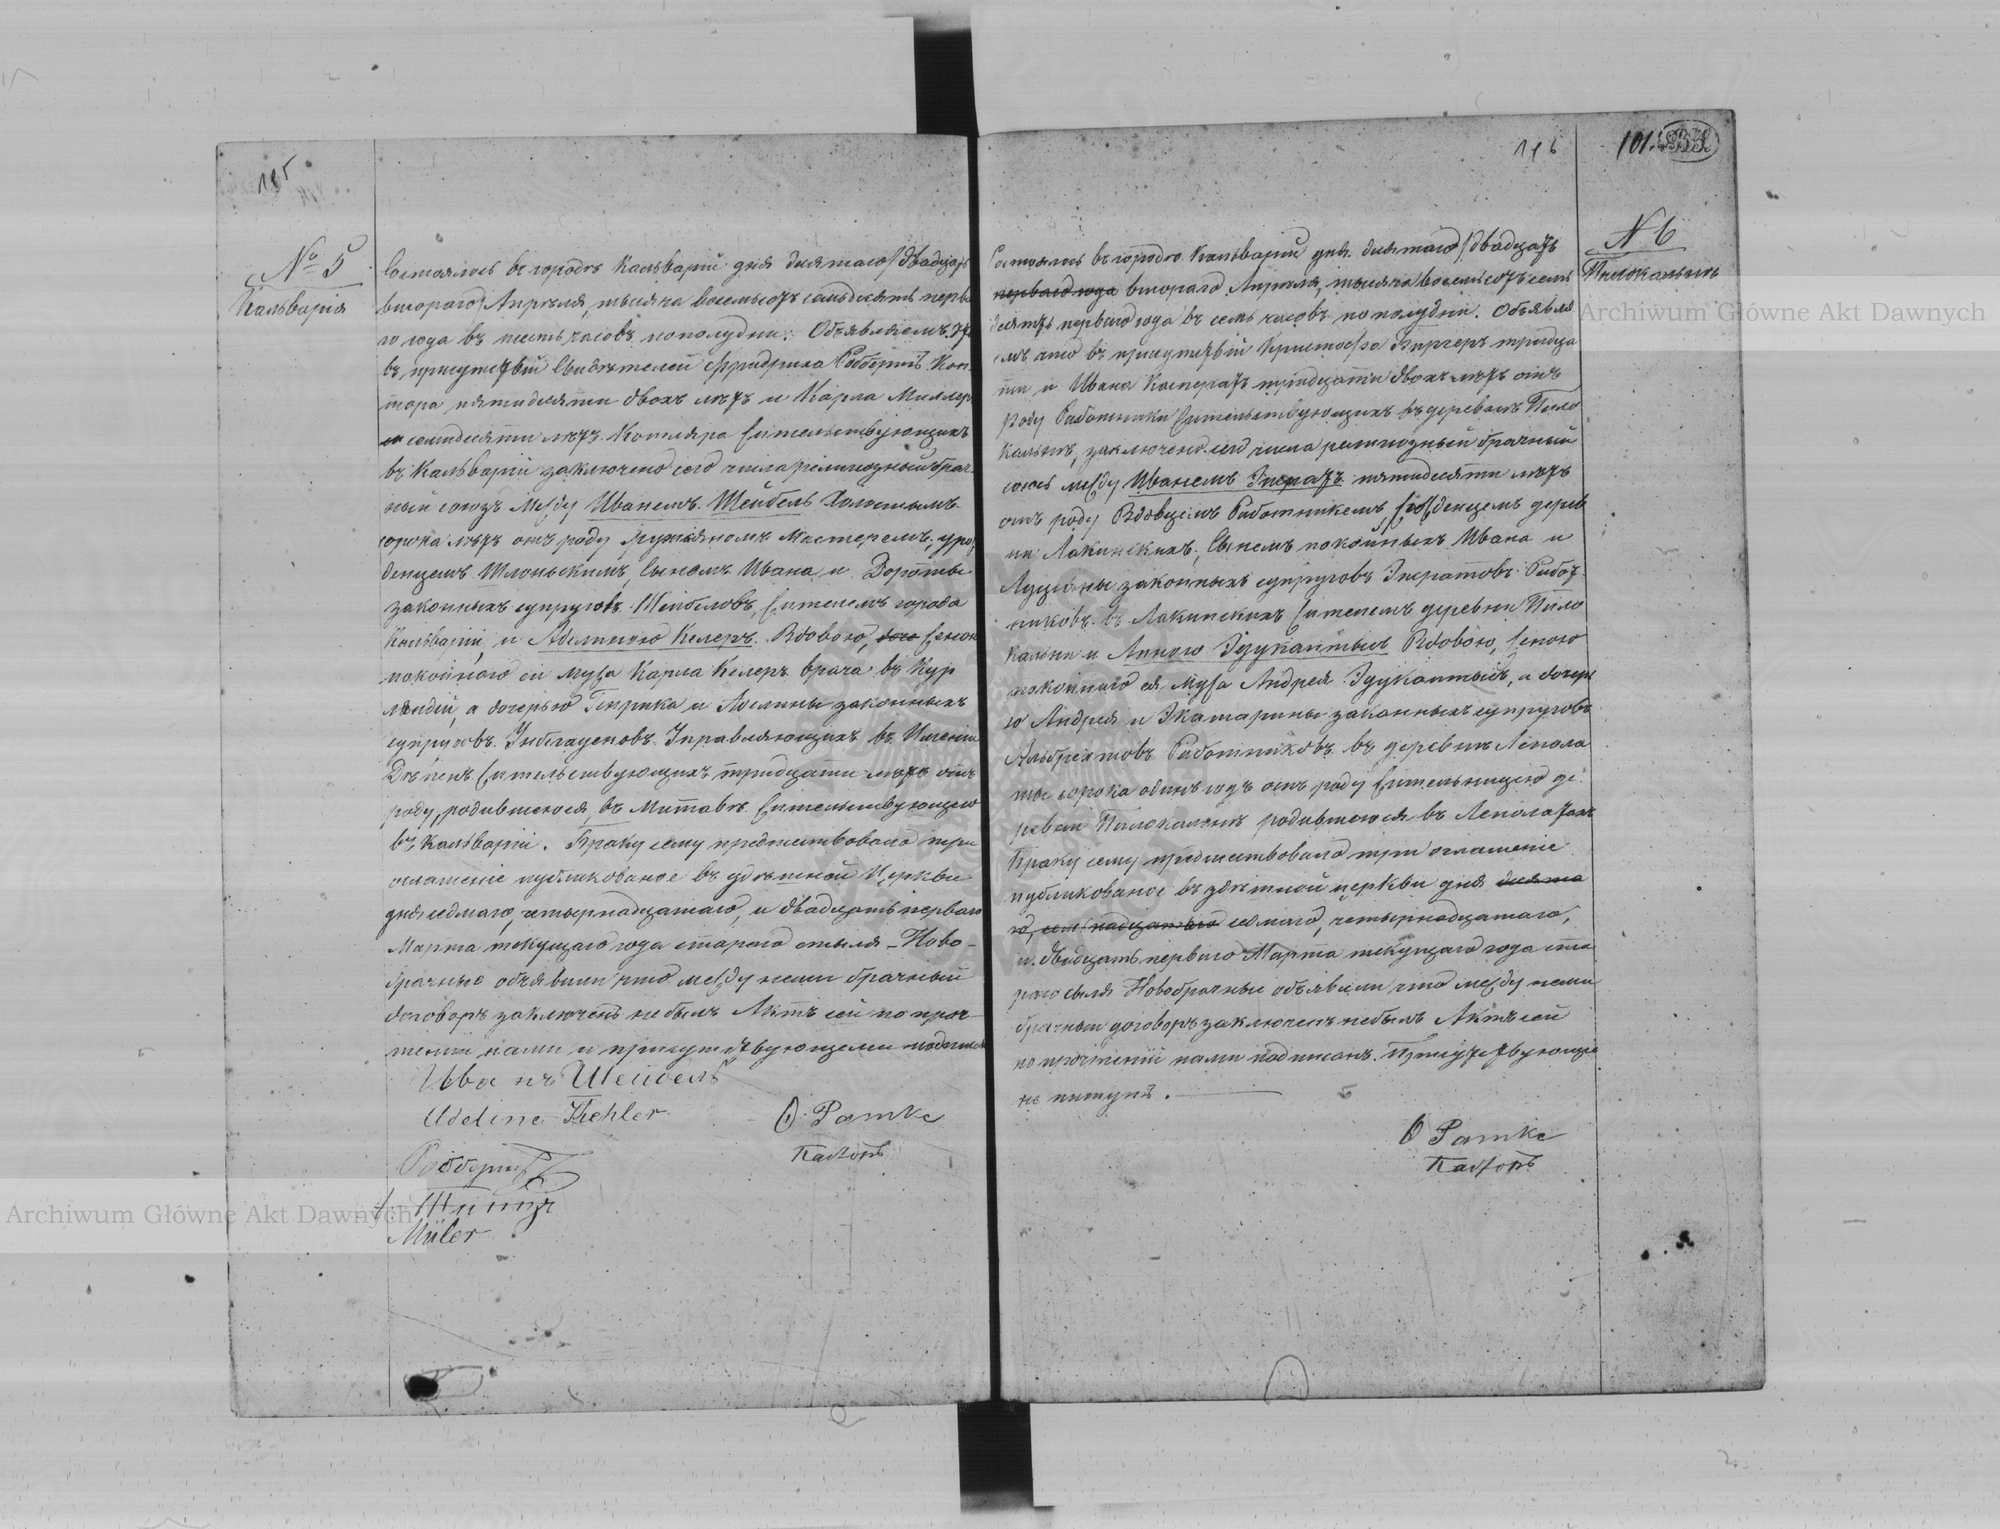 185
№ 5
Кальварія
Состоялось въ городѣ Кальваріи дня десятаго/двадцать
втораго/ Апрѣля, тысяча восемьсотъ семьдесятъ перва
го года въ шесть часовъ пополудни. Объявляемъ, что
въ присутствіи Свидѣтелей Фридриха Робертъ Кан
тора пятидесяти двохъ лѣтъ и Карла Миллер
семидесяти лѣтъ Котляра жительствующихъ
въ Кальваріи заключено сего числа религіозный брач
ный союзъ между Иваномъ Шейбель Холостымъ
сорока лѣтъ отъ роду ружейномъ Мастеремъ, уро
денцемъ Сыномъ Ивана и Доротты
законныхъ супруговъ Шейбеловъ, жителемъ города
Кальваріи, и Аделиною Келеръ Вдовою, женою
покойного ея мужа Карла Келеръ врача въ Кур
ляндіи, а дочерью Генрика и Аделины законныхъ
супруговъ Управляющихъ въ Имѣніи
жительствующихъ тридцати лѣтъ отъ
роду, родившеюся въ Митавѣ жительствующею
въ Кальваріи. Браку сему предшествовало три
оглашеніе публикованое въ здѣшной Церкви
дня седмаго, четырнадцатаго, и двадцать перваго
Марта текущаго года стараго стыля – Ново-
брачные объявили что между ними брачный
договоръ заключенъ не былъ Актъ сей по проч-
теніи нами и присутствующеми подписанъ
Иванъ Шейбель
Adeline Kehler
О. Ратке
Пасторъ
Роббертъ
Müler
186
101.
N 6
Пилокальнѣ
Состоялось въ городѣ Кальваріи дня десятаго/двадцать
перваго года втораго Апрѣля, тысяча восемьсотъ семь
десятъ перваго года въ семь часовъ пополудни. Объявля
емъ что въ присутствіи Кристофа Бергеръ тридца
ти и Ивана тридцати двохъ лѣтъ отъ
роду Работники жительствующихъ въ деревнѣ Пило
кальнѣ, заключено сего числа религіозный брачный
союзъ между Иваномъ пятидесяти лѣтъ
отъ роду Вдовцемъ Работникемъ, деревни
Лакинскихъ, Сыномъ покойныхъ Ивана и
законныхъ супруговъ Работ
никовъ въ Лакинскихъ жителемъ деревни Пило
кальни и Анною Вдовою, женою
покойнаго ея мужа Андрея а дочерь
ю Андрея и Экатарины законныхъ супруговъ
Альбрехтовъ Работниковъ въ деревнѣ Лепола
ты сорока одинъ годъ отъ роду жительницею де
ревни Пилокальнѣ родившеюся въ Леполатахъ
Браку сему предшествовало три оглашеніе
публикованое въ здѣшной церкви дня десята
го, семнадцатаго седмаго, четырнадцатаго,
и двадцать перваго Марта текущаго года ста
раго стыля Новобрачные объявили что между ними
брачный договоръ заключенъ небылъ Актъ сей
по прочтеніи нами подписанъ. Присутствующіе
не пишутъ.
О Ратке
Пасторъ
Archiwum Główne Akt Dawnych
Archiwum Główne Akt Dawnych